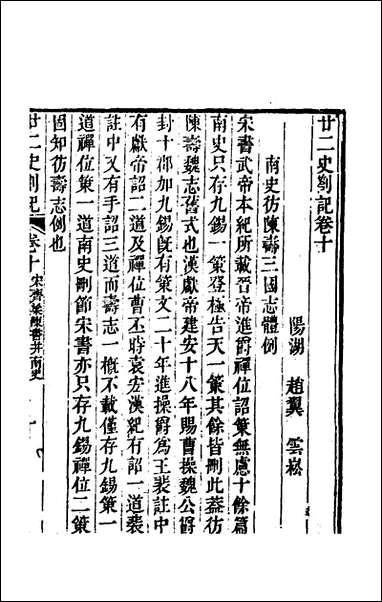 廿二史劄記卷十
陽湖 趙翼 雲崧
南史仿陳壽三國志體例
宋書武帝本紀所載晉帝進爵禪位詔策無慮十餘篇
南史只存九錫一策登極告天一策其餘皆刪此蓋仿
陳壽魏志舊式也漢獻帝建安十八年賜曹操魏公爵
封十郡加九錫旣有策文二十年進操爵爲王裴註中
有獻帝詔二道及禪位曹丕時袁宏漢紀有詔一道裴
註中又有手詔三道而壽志一槪不載僅存九錫策一
道禪位策一道南史刪節宋書亦只存九錫禪位二策
固知仿壽志例也
廿二史劄記 卷十 宋齊梁陳書并南史 一